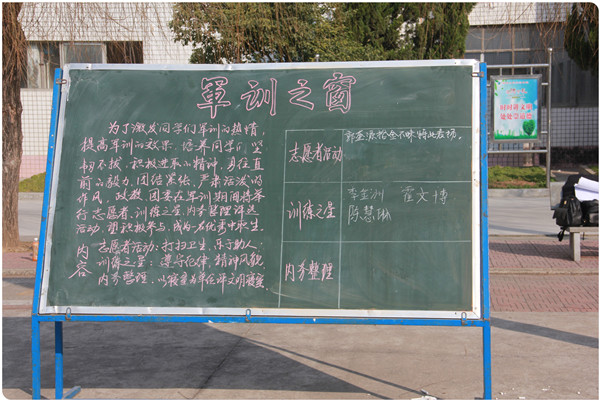 军训之窗
为了激发同学们军训的热情,
提高军训的效果,培养同学们坚
韧不拔、积极进取的精神,勇往直
前的毅力,团结紧张、严肃活泼的
作风,政教、团委在军训期间将举
行志愿者、训练之星、内务整理评选
活动,望积极参与,成为一名优秀中职生。
内容
志愿者活动:打扫卫生,乐于助人;
训练之星:遵守纪律,精神风貌
内务整理,以寝室为单位评文明寝室
志愿者活动
拾金不昧,特此表扬。
训练之星
李金洲 霍文博
陈慧琳
内务整理
时时讲文明
处处学礼仪